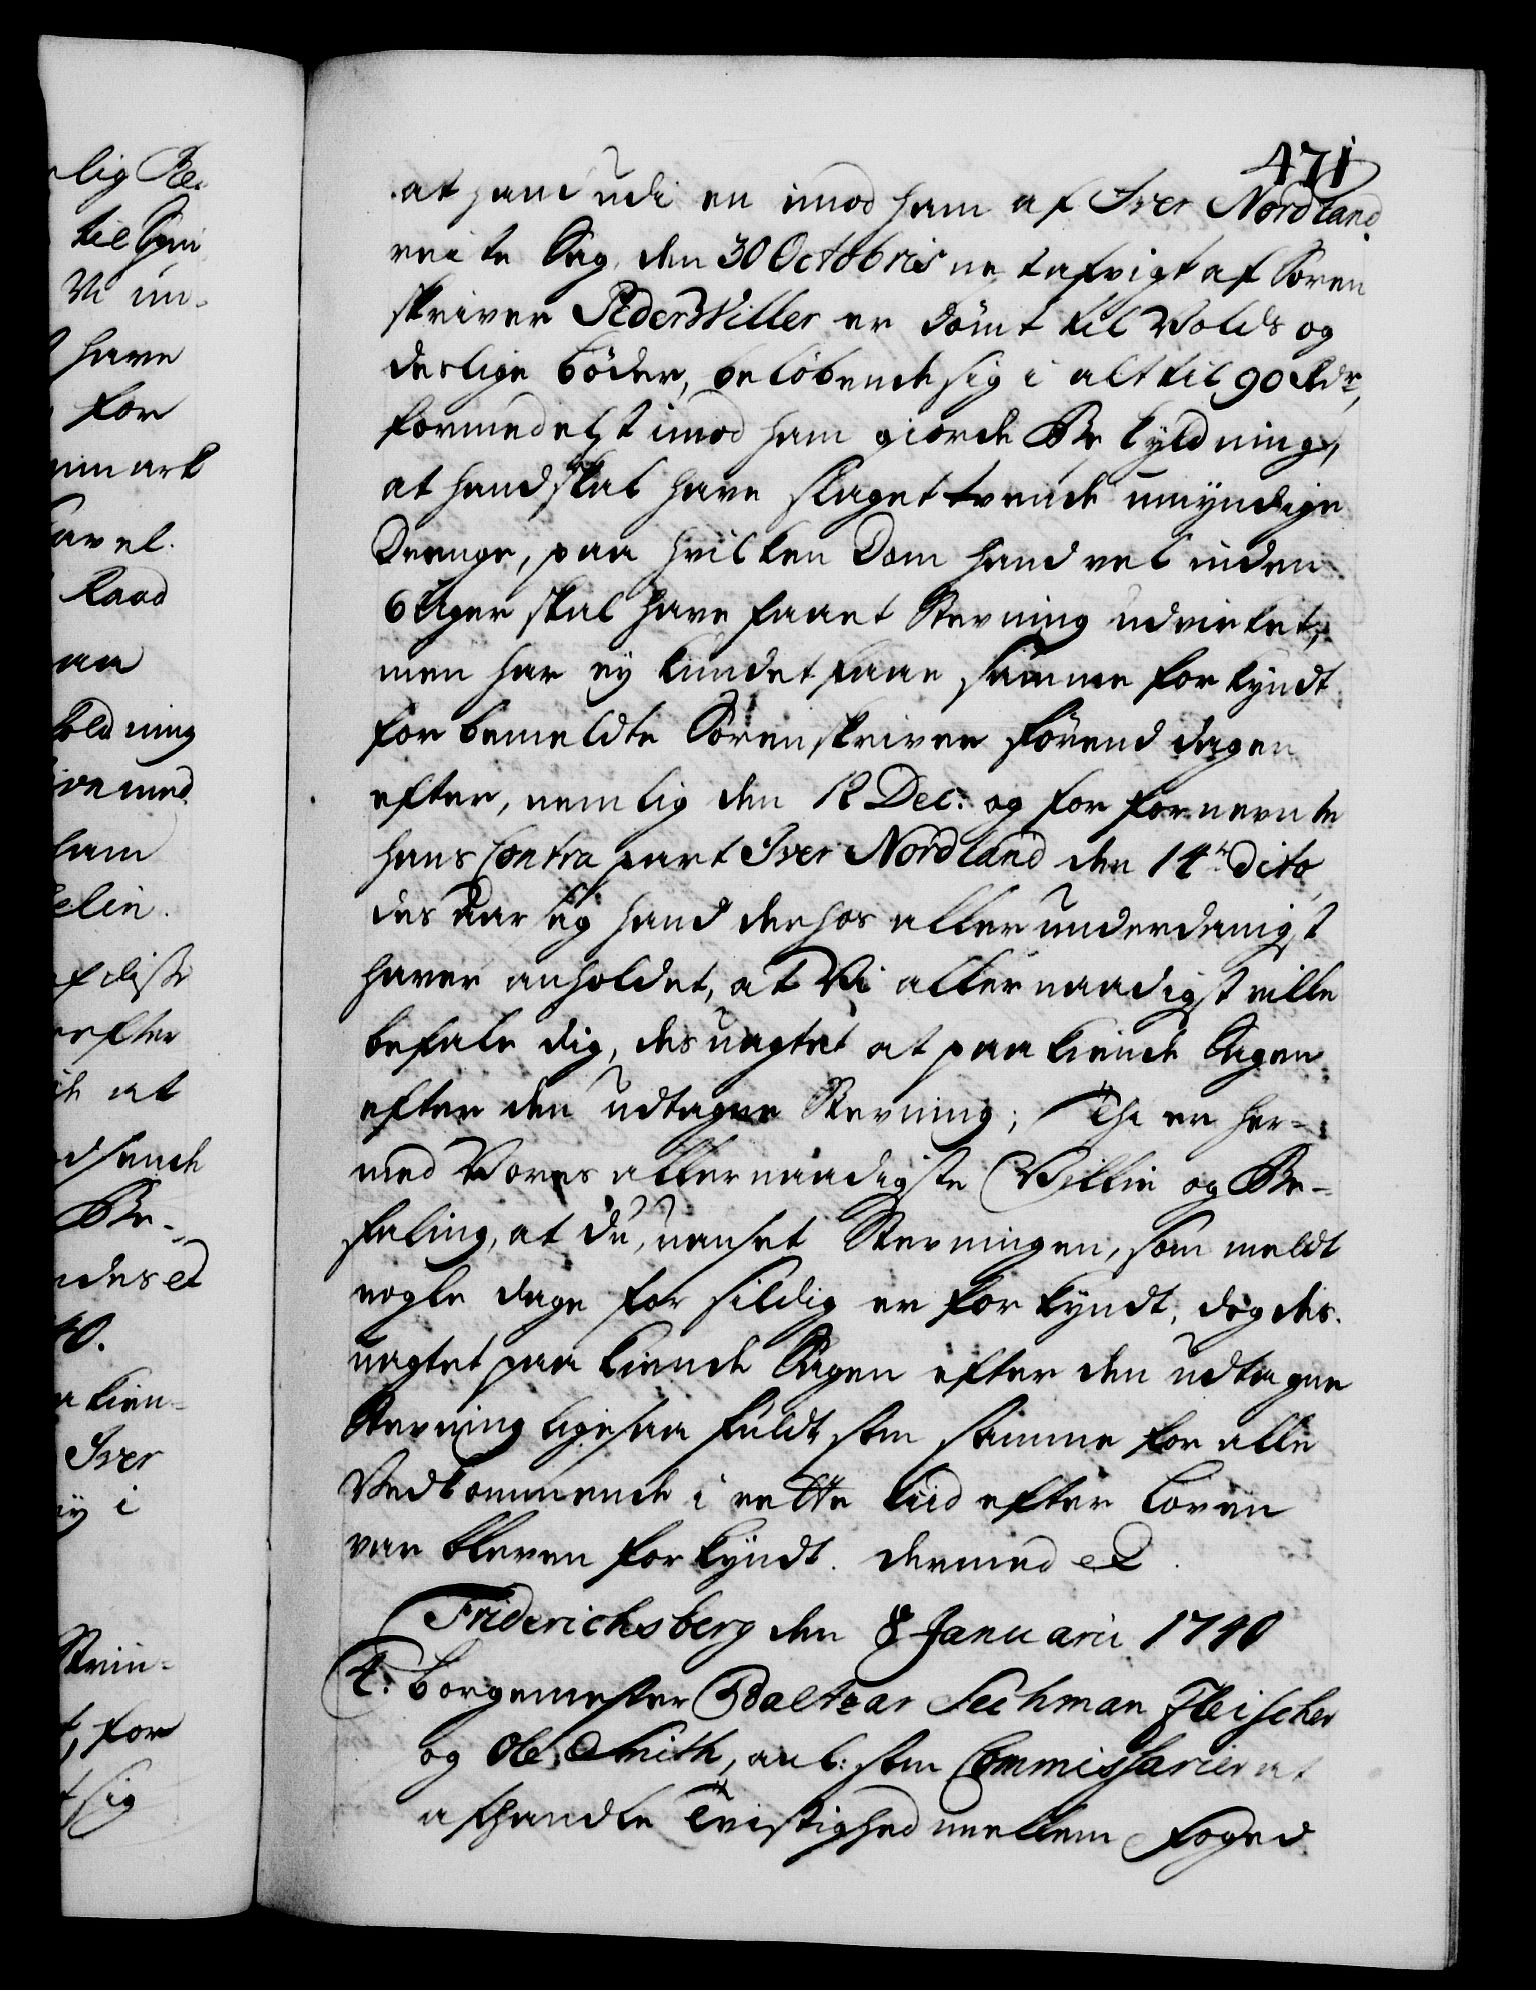 471
at hand udi en imod ham af Iver Nordland
reiste Sag, den 30 Octobris nest afvigt af Soren
skriver Peder Willer er dömt til Volds og
deslige böder, belöbende sig i alt til 90 Rdr,
formedelst imod ham giorde Beskyldning,
at hand skal have slaget tvende umyndige
Drenge, paa hvilken Dom hand vel inden
6 Uger skal have faaet Stevning udvirket,
men har ey kundet faae samme forkyndt
for bemeldte Sorenskriver förend dagen
efter, nemlig den 12 Dec: og for fornevnte
hans Contrapart Iver Nordland den 14de dito,
des aarsag hand derhos allerunderdanigst
haver anholdet, at Vi allernaadigst ville
befale dig, desuagtet at paakiende Sagen
efter den udtagne Stevning; Thi er her-
med Vores allernaadigste Villie og Be-
faling, at du, uanset Stevningen, som meldt
nogle dage for sildig er forkyndt, dog des-
uagtet paakiende Sagen efter den udtagne
Stevning ligesaa fuldt som samme for alle
Vedkommende i rette tiid efter Loven
var bleven forkyndt. dermed et
Friderichsberg den 8 Januarii 1740
4. borgemester Baltzar Sechman Fleischer
og Ole Smith, anl: som Commissarier at
afhandle Tvistighed mellem Foged